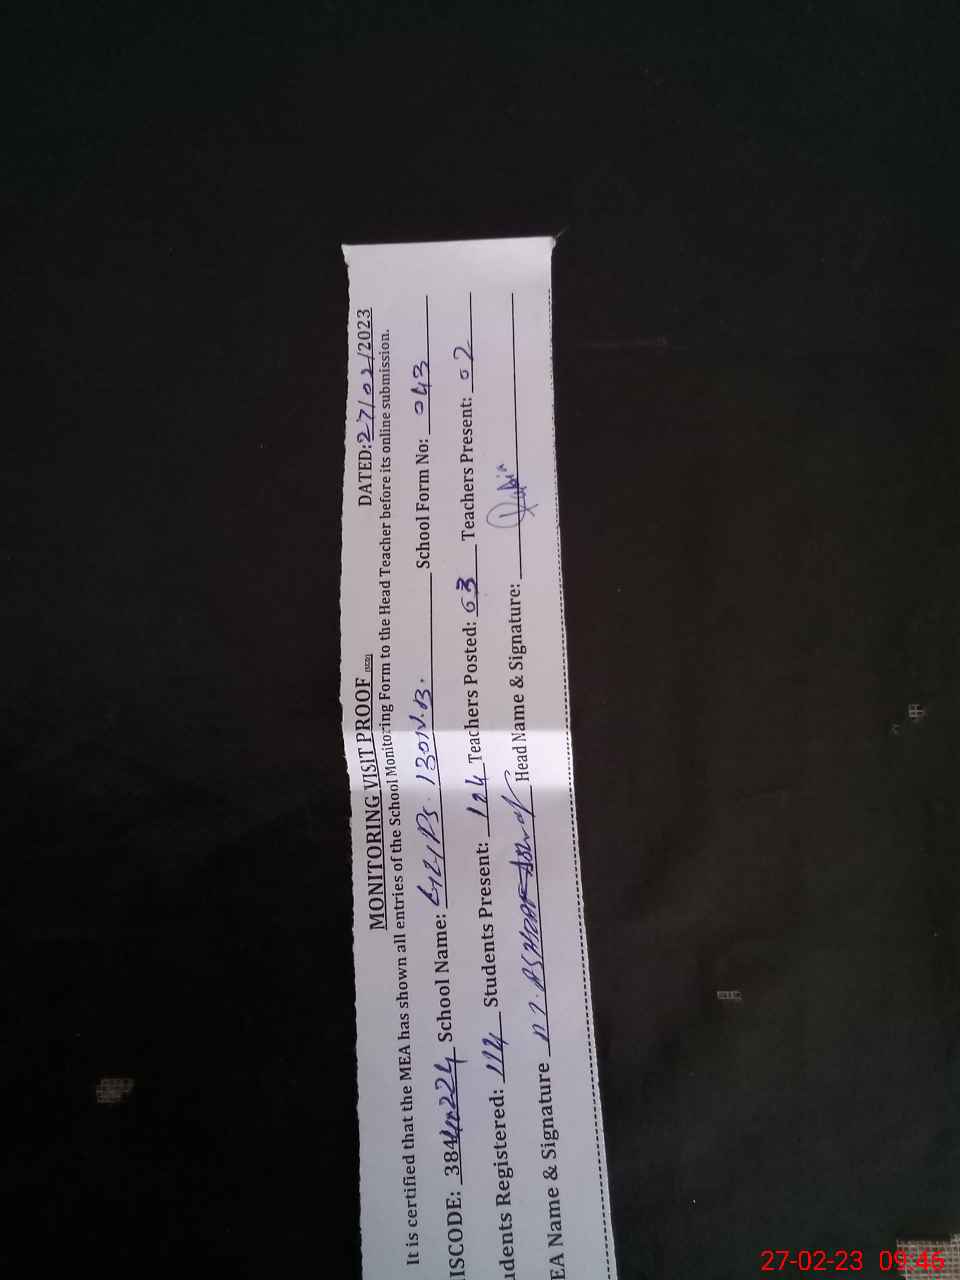 MONITORING VISIT PROOF DATED: 27/02/2023
It is certified that the MEA has shown all entries of the School Monitoring Form to the Head Teacher before its online submission.
ISCODE: 384 224 School Name: 130N.B. School Form No: 043
udents Registered: 114 Students Present: 104 Teachers Posted: 03 Teachers Present: 02
EA Name & Signature Head Name & Signature:
27-02-23 09:46